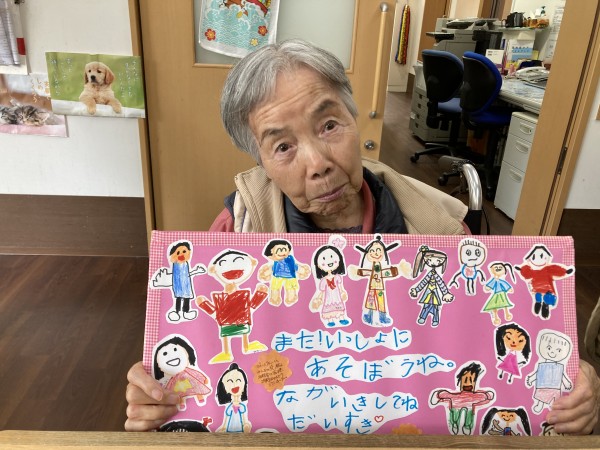 また!いっしょに
あそぼうね。
ながいきしてね
だいすき♡